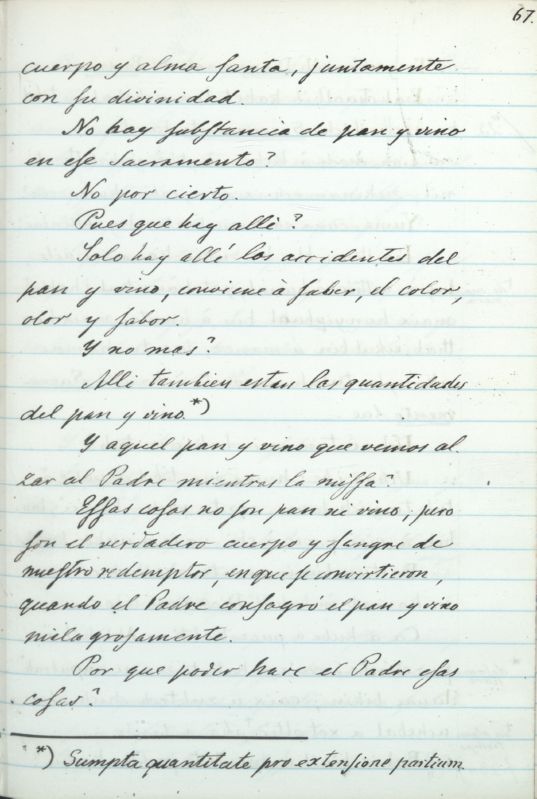 67.
cuerpo y alma ſanta, juntamente
con ſu divinidad.
No hay ſubſtancia de pan y vino
en eſe Sacramento?
No por cierto.
Pues que hay allì?
Solo hay allì los accidentes del
pan y vino, conviene à ſaber, el color,
olor y ſabor.
Y no mas?
Alli tambien estan las quantidades
del pan y vino.*)
Y aquel pan y vino que vemos al-
zar al Padre mientras la miſſa?
Eſſas coſas no ſon pan ni vino, pero
ſon el verdadero cuerpo y ſangre de
nueſtro redemptor, en que ſe convirtieron,
quando el Padre conſagró el pan y vino
milagroſamente.
Por que poder hace el Padre eſas
coſas?
*) Sumpta quantitate pro extenſione partium